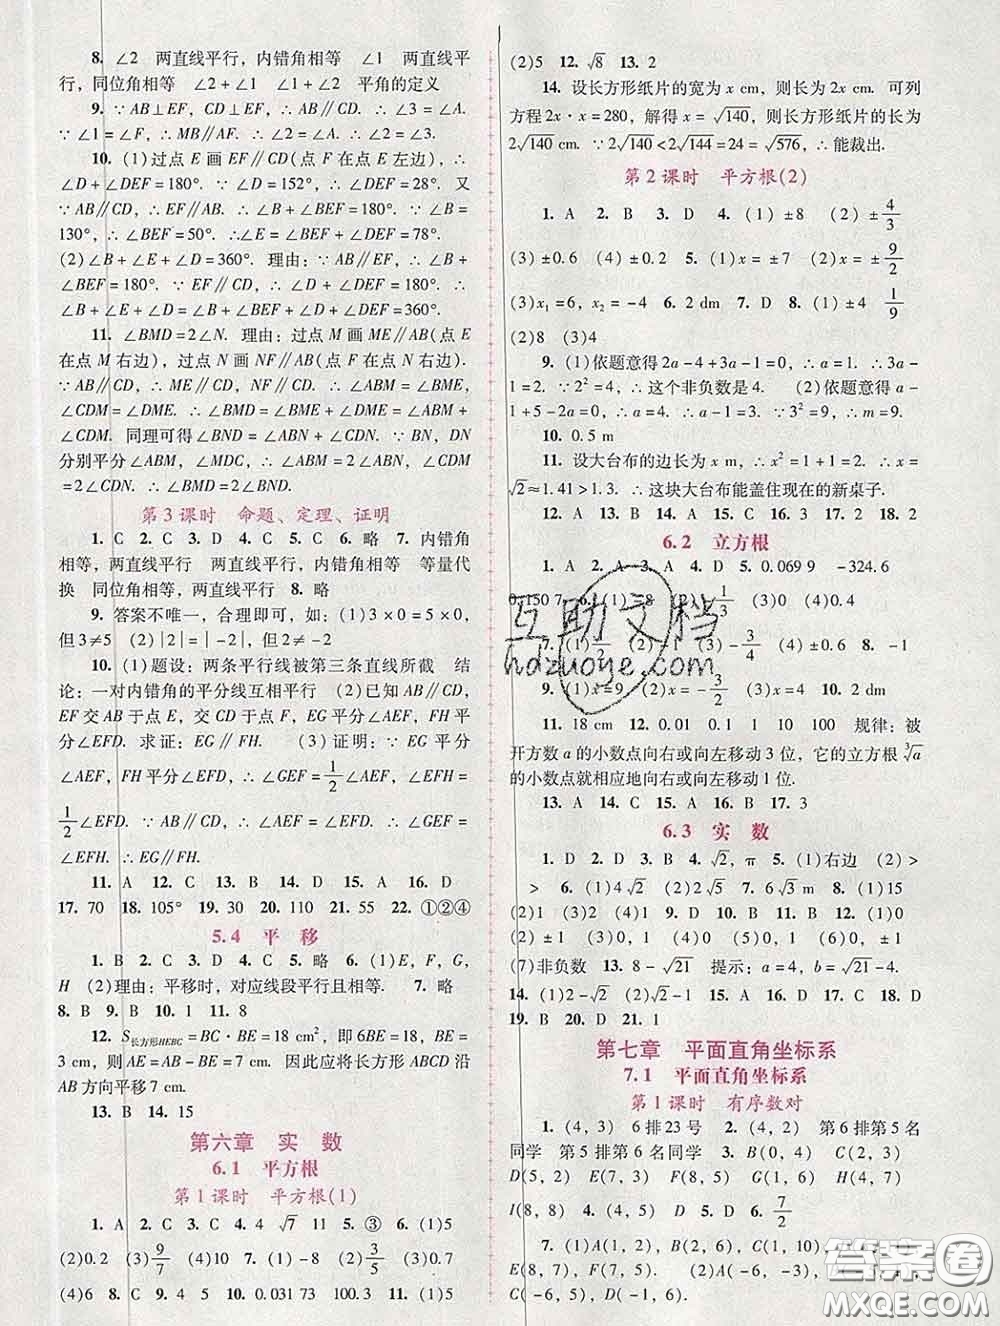 8. ∠2 两直线平行，内错角相等 ∠1 两直线平
行，同位角相等 ∠2+∠1 ∠1+∠2 平角的定义
9. ∵AB⊥EF，CD⊥EF，∴AB∥CD. ∴∠3=∠A.
∵∠1=∠F，∴MB∥AF. ∴∠2=∠A. ∴∠2=∠3.
10. (1)过点E画EF∥CD(点F在点E左边)，∴
∠D+∠DEF=180°. ∵∠D=152°，∴∠DEF=28°. 又
∵AB∥CD，∴EF∥AB. ∴∠B+∠BEF=180°. ∵∠B=
130°，∴∠BEF=50°. ∴∠E=∠BEF+∠DEF=78°.
(2)∠B+∠E+∠D=360°. 理由：∵AB∥EF，∴∠B+
∠BEF=180°. ∵EF∥CD，∴∠D+∠DEF=180°. ∴
∠B+∠E+∠D=∠B+∠BEF+∠D+∠DEF=360°.
11. ∠BMD=2∠N. 理由：过点M画ME∥AB(点E
在点M右边)，过点N画NF∥AB(点F在点N右边).
∵AB∥CD，∴ME∥CD，NF∥CD. ∴∠ABM=∠BME，
∠CDM=∠DME. ∴∠BMD=∠BME+∠DME=∠ABM+
∠CDM. 同理可得∠BND=∠ABN+∠CDN. ∵BN，DN
分别平分∠ABM，∠MDC，∴∠ABM=2∠ABN，∠CDM=
2∠CDN. ∴∠BMD=2∠BND.
第3课时 命题、定理、证明
1. C 2. C 3. D 4. C 5. C 6. 略 7. 内错角
相等，两直线平行 两直线平行，内错角相等 等量代
换 同位角相等，两直线平行 8. 略
9. 答案不唯一，合理即可，如：(1)3×0=5×0，
但3≠5 (2)|2|=|-2|，但2≠-2
10. (1)题设：两条平行线被第三条直线所截 结
论：一对内错角的平分线互相平行 (2)已知AB∥CD，
EF交AB于点E，交CD于点F，EG平分∠AEF，FH平
分∠EFD. 求证：EG∥FH. (3)证明：∵EG平分
∠AEF，FH平分∠EFD，∴∠GEF=1/2∠AEF，∠EFH=
1/2∠EFD. ∵AB∥CD，∴∠AEF=∠EFD. ∴∠GEF=
∠EFH. ∴EG∥FH.
11. A 12. C 13. B 14. D 15. A 16. D
17. 70 18. 105° 19. 30 20. 110 21. 65 22. ①②④
5.4 平移
1. B 2. C 3. D 4. C 5. 略 6. (1)E，F，G，
H (2)理由：平移时，对应线段平行且相等. 7. 略
8. B 9. B 10. 1 11. 8
12. S长方形HEBC=BC·BE=18 cm²，即6BE=18，BE=
3 cm，则AE=AB-BE=7 cm. 因此应将长方形ABCD沿
AB方向平移7 cm.
13. B 14. 15
第六章 实数
6.1 平方根
第1课时 平方根(1)
1. A 2. C 3. C 4. 4 √7 11 5. ③ 6. (1)5
(2)0.2 (3)9/7 (4)10 7. (1)-8 (2)3/5 (3)0.7
(4)6 8. C 9. 4 5 10. 0.031 73 100.3 11. (1)5
(2)5 12. √8 13. 2
14. 设长方形纸片的宽为x cm，则长为2x cm. 可列
方程2x·x=280，解得x=√140，则长方形纸片的长为
2√140 cm. ∵2√140<2√144=24=√576，∴能裁出.
第2课时 平方根(2)
1. A 2. B 3. D 4. (1)±8 (2)±4/3
(3)±0.6 (4)±0.2 5. (1)x=±7 (2)x=±9/2
(3)x₁=6，x₂=-4 6. 2 dm 7. D 8. (1)±4 1/9
(2)8 (3)4
9. (1)依题意得2a-4+3a-1=0，∴a=1. ∴3a-
1=2. ∵2²=4，∴这个非负数是4. (2)依题意得a-
1+5-2a=0，∴a=4. ∴a-1=3. ∵3²=9，∴m=9.
10. 0.5 m
11. 设大台布的边长为x m，∴x²=1+1=2. ∴x=
√2≈1.41>1.3. ∴这块大台布能盖住现在的新桌子.
12. A 13. B 14. A 15. C 16. 3 17. 2 18. 2
6.2 立方根
1. A 2. A 3. A 4. D 5. 0.069 9 -324.6
0.150 7 6. (1)-8 (2)-1/3 (3)0 (4)0.1
7. (1)1/2 (2)-1 (3)-3/4 (4)±0.6 8. -1
9. (1)x=9 (2)x=-3/2 (3)x=3 10. 2 dm
11. 18 cm 12. 0.01 0.1 1 10 100 规律：被
开方数a的小数点向右或向左移动3位，它的立方根∛a
的小数点就相应地向右或向左移动1位.
13. A 14. C 15. A 16. B 17. 3
6.3 实数
1. D 2. D 3. B 4. √2，π 5. (1)右边 (2)>
> > 6. (1)4√2 (2)2√5 7. 6√3 m 8. (1)15
(2)1 (3)2 (4)1 9. D 10. B 11. C 12. (1)
0，±1 (2)0，1 (3)0，1 (4)0 (5)1 (6)±1
(7)非负数 13. 8-√21 提示：a=4，b=√21-4.
14. (1)2-√2 (2)√2-1 15. A 16. D 17. C 18. D
19. B 20. D 21. 1
第七章 平面直角坐标系
7.1 平面直角坐标系
第1课时 有序数对
1. (4，3) 6排23号 2. (4，2) 第6排第5名
同学 第5排第6名同学 3. B(0，4) C(2，3)
D(5，2) E(7，3) F(8，5) G(7，6) H(4，7)
I(8，8) 4. (4，5) 5. D 6. 7/2
7. (1)A(1，2)，B(2，6)，C(1，10)，
E(8，7)，F(7，1). (2)A(-3，-2)，
C(-6，5)，D(-1，6).
互助文档
hdzuoye.com
答案圈
MXQE.COM